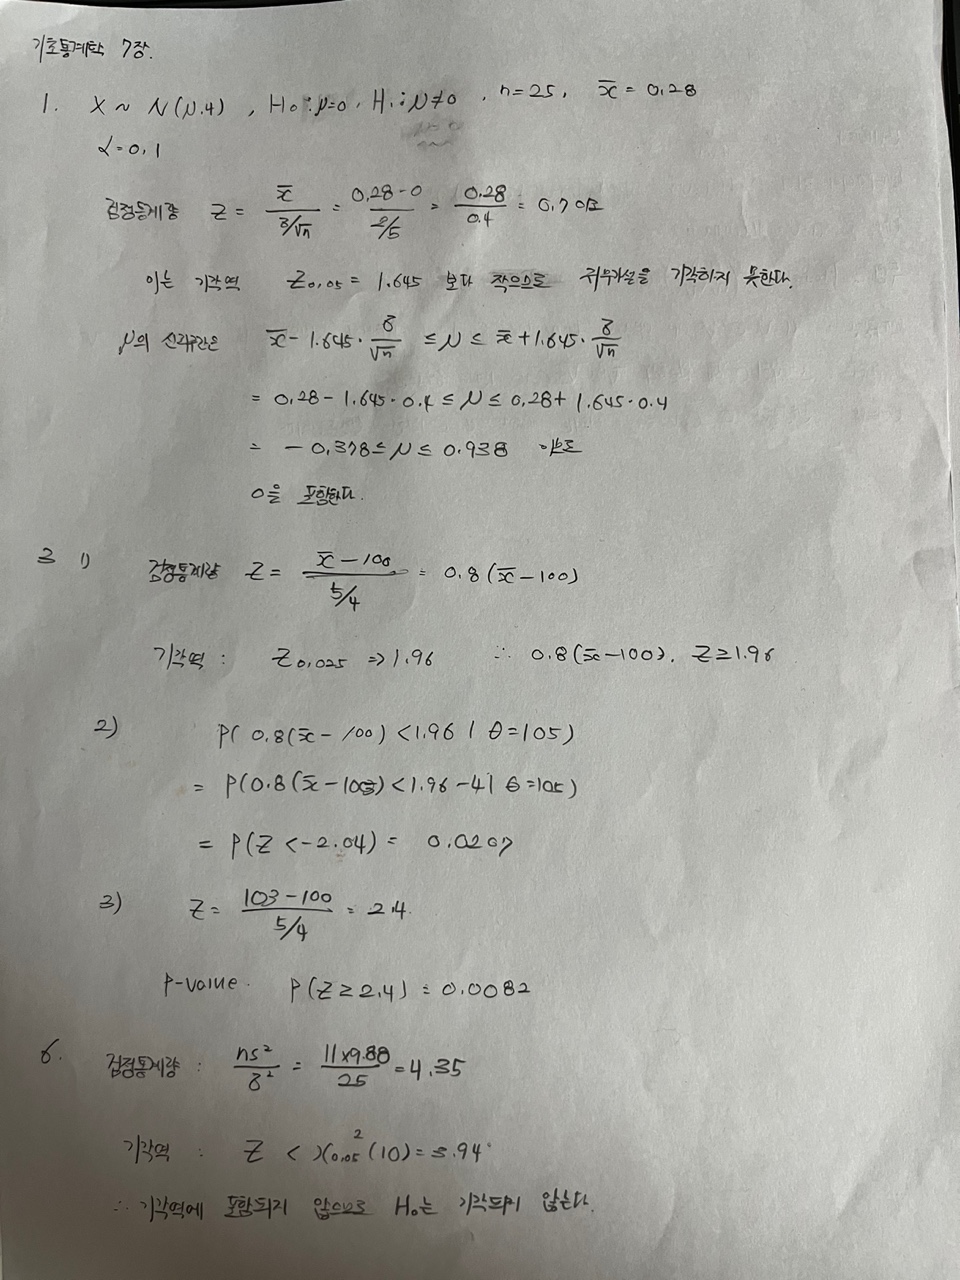 기초통계학 7장.
1. X ~ N(μ.4) , H₀:μ=0, H₁:μ≠0 , n=25, x̄ = 0.28
α=0.1
검정통계량 Z = x̄/(σ/√n) = (0.28-0)/(2/5) = 0.28/0.4 = 0.7 이므로
이는 기각역 Z₀.₀₅ = 1.645 보다 작으므로 귀무가설을 기각하지 못한다.
μ의 신뢰구간은 x̄ - 1.645 · σ/√n ≤ μ ≤ x̄ + 1.645 · σ/√n
= 0.28 - 1.645 · 0.4 ≤ μ ≤ 0.28 + 1.645 · 0.4
= - 0.378 ≤ μ ≤ 0.938 이므로
0을 포함한다.
3 1) 검정통계량 Z = (x̄ - 100)/(5/4) = 0.8(x̄ - 100)
기각역 : Z₀.₀₂₅ ⇒ 1.96 ∴ 0.8(x̄-100). Z ≥ 1.96
2) P( 0.8(x̄ - 100) < 1.96 | θ=105)
= P(0.8(x̄ - 105) < 1.96 - 4 | θ=105)
= P(Z < -2.04) = 0.0207
3) Z = (103-100)/(5/4) = 2.4.
P-value. P(Z ≥ 2.4) = 0.0082
6. 검정통계량 : ns²/σ² = 11×9.88/25 = 4.35
기각역 : Z < χ²₀.₀₅(10) = 3.94
∴ 기각역에 포함되지 않으므로 H₀는 기각되지 않는다.